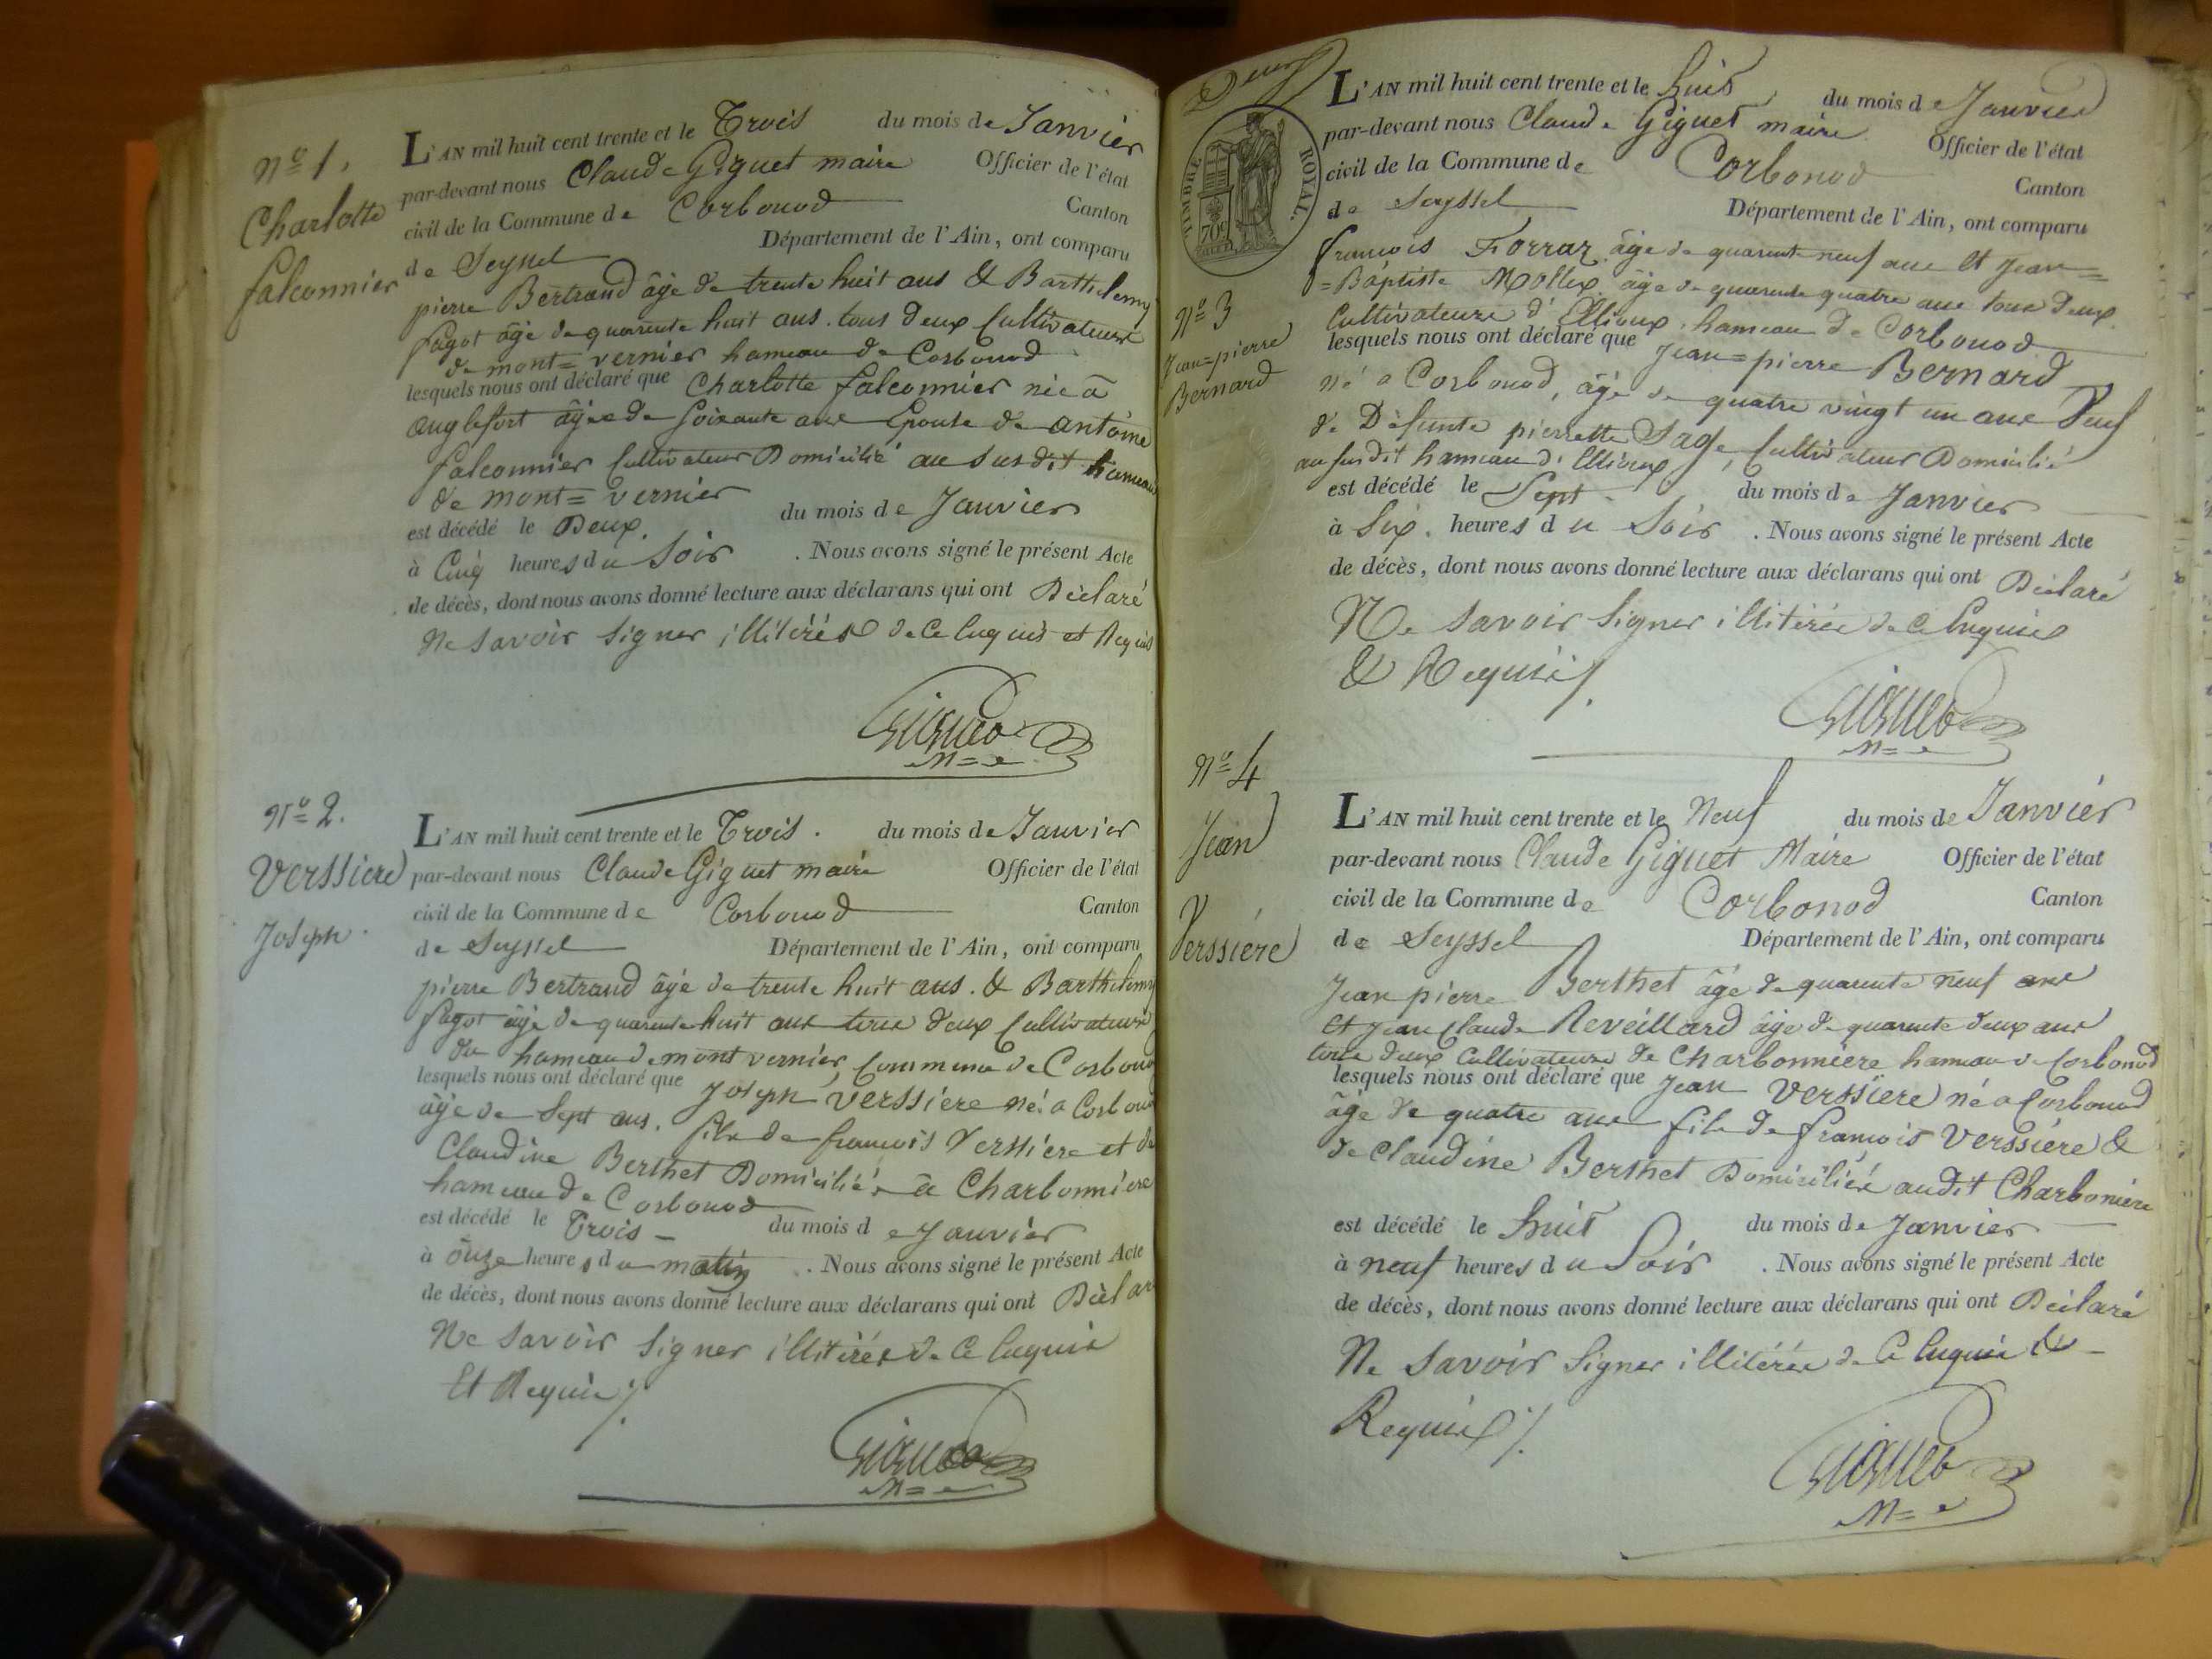 Nº 1.
Charlotte
falconnier
L'AN mil huit cent trente et le Trois du mois de Janvier
par-devant nous Claude Giguet maire Officier de l'état
civil de la Commune de Corbonod Canton
de Seyssel Département de l'Ain, ont comparu
pierre Bertrand âgé de trente huit ans & Barthelemy
fagot âgé de quarente huit ans. tous deux Cultivateurs
de mont=vernier hameau de Corbonod
lesquels nous ont déclaré que Charlotte falconnier née à
anglefort âgée de soixante ans Epouse de antoine
falconnier Cultivateur Domicilié au susdit hameau
de mont=vernier
est décédé le Deux. du mois de Janvier
à Cinq heures du Soir . Nous avons signé le présent Acte
de décès, dont nous avons donné lecture aux déclarans qui ont Déclaré
Ne savoir signer illitérés de ce Enquis et Requis
Giguet
M=e
Nº 2.
Verssiere
Joseph.
L'AN mil huit cent trente et le Trois. du mois de Janvier
par-devant nous Claude Giguet maire Officier de l'état
civil de la Commune de Corbonod Canton
de Seyssel Département de l'Ain, ont comparu
pierre Bertrand âgé de trente huit ans. & Barthelemy
fagot âgé de quarente huit ans tous deux Cultivateurs
du hameau de mont vernier, Commune de Corbonod
lesquels nous ont déclaré que Joseph Verssiere né à Corbonod
âgé de Sept ans. fils de françois Verssiere et de
Claudine Berthet Domiciliés à Charbonniere
hameau de Corbonod
est décédé le Trois du mois de Janvier
à onze heures du matin . Nous avons signé le présent Acte
de décès, dont nous avons donné lecture aux déclarans qui ont Déclaré
Ne savoir signer illitérés de ce Enquis
Et Requis ./.
Giguet
M=e
Deux
TIMBRE ROYAL.
70c
Nº 3
Jean=pierre
Bernard
L'AN mil huit cent trente et le huit du mois de Janvier
par-devant nous Claude Giguet maire Officier de l'état
civil de la Commune de Corbonod Canton
de Seyssel Département de l'Ain, ont comparu
françois Forraz âgé de quarente neuf ans et Jean=
=Baptiste Mollex âgé de quarente quatre ans tous deux
Cultivateurs d'Ellioux hameau de Corbonod
lesquels nous ont déclaré que Jean=pierre Bernard
né à Corbonod, âgé de quatre vingt un ans Veuf
de Défunte pierrette Sage, Cultivateur Domicilié
au susdit hameau d'Ellioux
est décédé le Sept du mois de Janvier
à Six. heures du Soir . Nous avons signé le présent Acte
de décès, dont nous avons donné lecture aux déclarans qui ont Déclaré
Ne savoir signer illitérés de ce Enquis
& Requis ./.
Giguet
M=e
Nº 4
Jean
Verssiere
L'AN mil huit cent trente et le Neuf du mois de Janvier
par-devant nous Claude Giguet Maire Officier de l'état
civil de la Commune de Corbonod Canton
de Seyssel Département de l'Ain, ont comparu
Jean pierre Berthet âgé de quarente neuf ans
Et Jean Claude Reveillard âgé de quarente deux ans
tous deux Cultivateurs de Charbonniere hameau de Corbonod
lesquels nous ont déclaré que Jean Verssiere né à Corbonod
âgé de quatre ans fils de françois Verssiere &
de Claudine Berthet Domiciliés audit Charboniere
est décédé le huit du mois de Janvier
à neuf heures du Soir . Nous avons signé le présent Acte
de décès, dont nous avons donné lecture aux déclarans qui ont Déclaré
Ne savoir signer illitérés de ce Enquis &
Requis ./.
Giguet
M=e